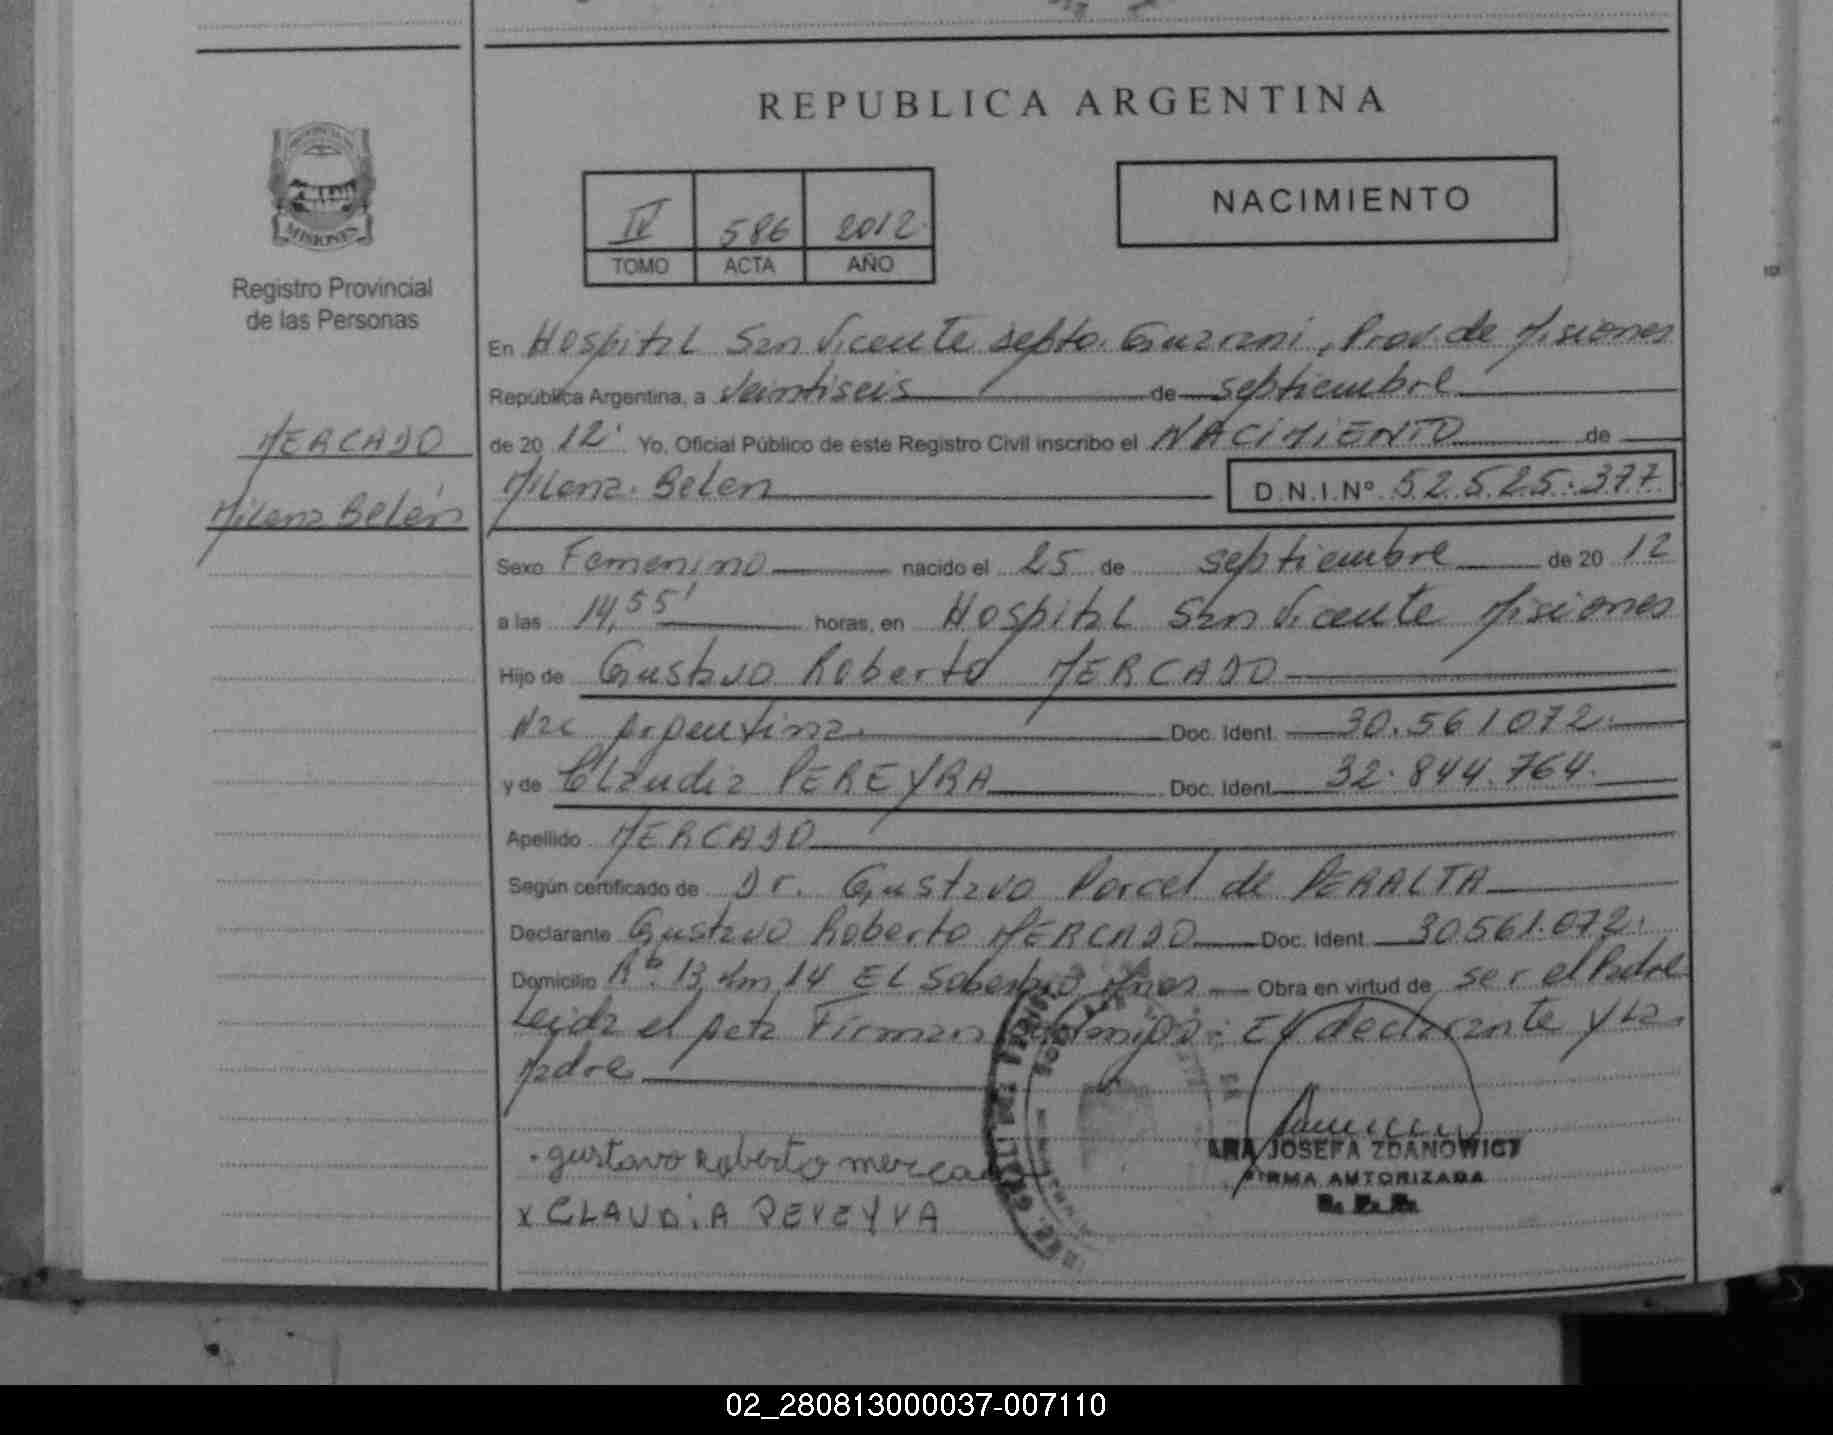 REPUBLICA ARGENTINA
IV 586 2012.
TOMO ACTA AÑO
NACIMIENTO
MISIONES
Registro Provincial
de las Personas
MERCADO
Milena Belén
En Hospital San Vicente Depto. Guarani, Prov. de Misiones
República Argentina, a Veintiseis de septiembre
de 20 12. Yo, Oficial Público de este Registro Civil inscribo el NACIMIENTO de
Milena Belen D.N.I.Nº 52.525.377
Sexo Femenino nacido el 25 de septiembre de 20 12
a las 14,55' horas, en Hospital San Vicente Misiones
Hijo de Gustavo Roberto MERCADO
Nac Argentina. Doc. Ident. 30.561072.
y de Claudia PEREYRA Doc. Ident. 32.844.764.
Apellido MERCADO
Según certificado de Dr. Gustavo Porcel de PERALTA
Declarante Gustavo Roberto MERCADO Doc. Ident. 30561.072.
Domicilio 13 km 14 EL Soberbio Mnes Obra en virtud de ser el Padre
Leida el Acta Firman conmigo: El declarante y La
Madre
. gustavo Roberto mercado
x CLAUDiA PEREYRA
ANA JOSEFA ZDANOWICZ
FIRMA AUTORIZADA
R. P. P.
02_280813000037-007110